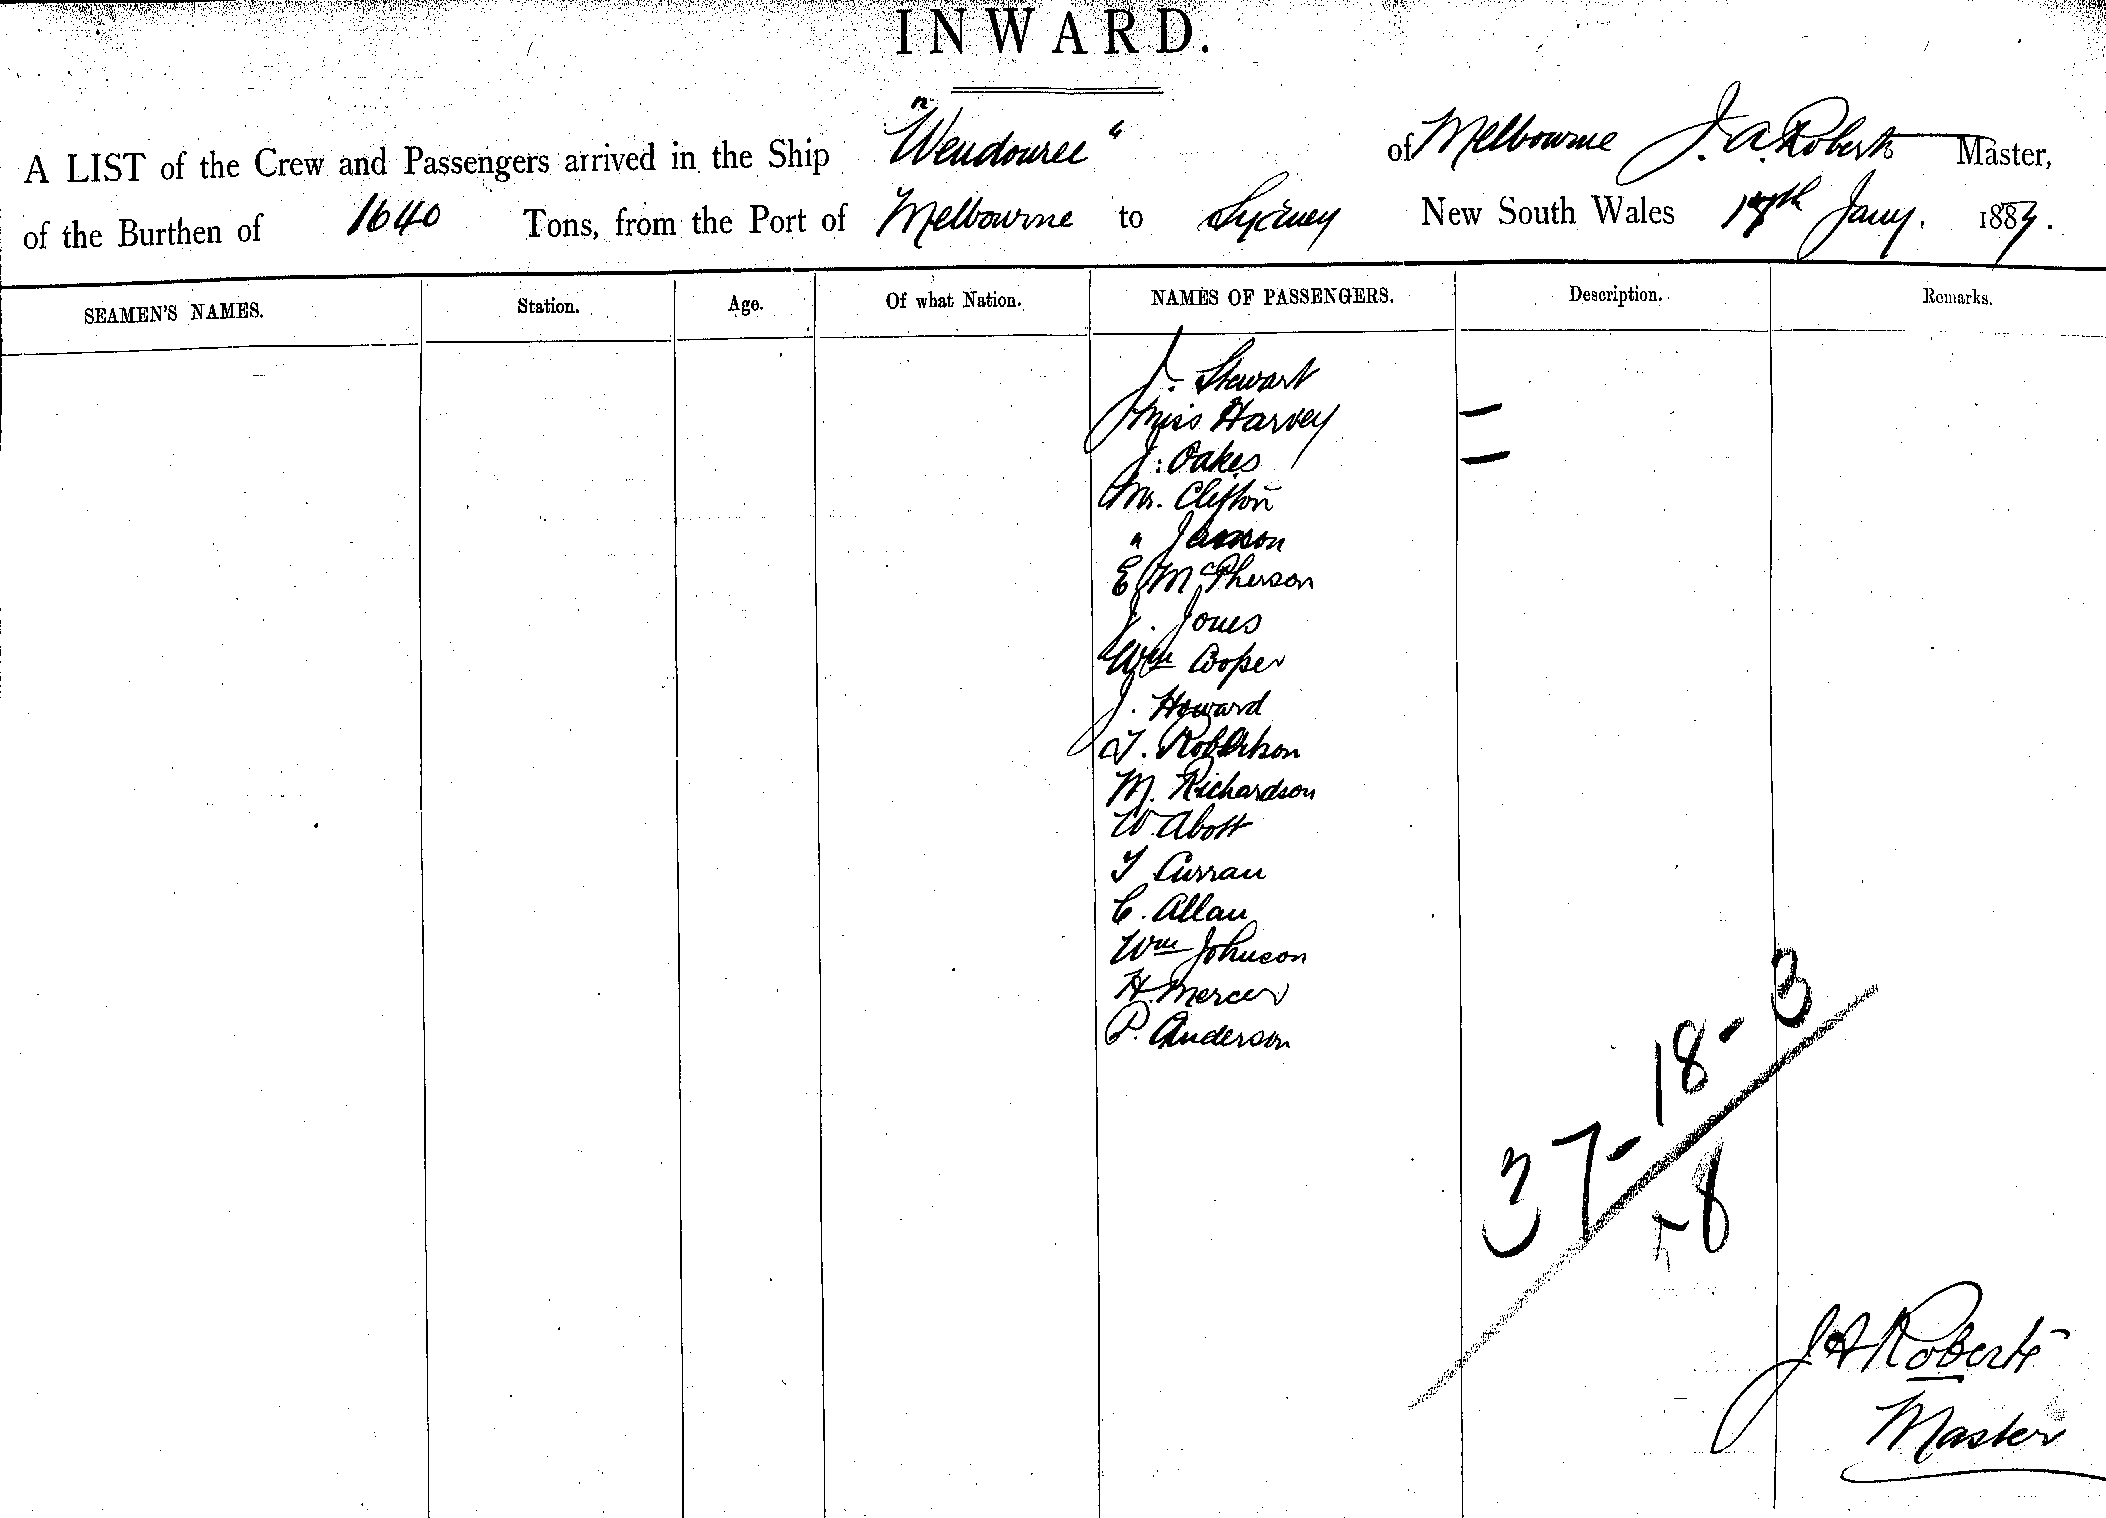 INWARD.
A LIST of the Crew and Passengers arrived in the Ship "Wendouree" of Melbourne J. A. Roberts Master,
of the Burthen of 1640 Tons, from the Port of Melbourne to Sydney New South Wales 17th Jany. 1887.
SEAMEN'S NAMES. Station. Age. Of what Nation. NAMES OF PASSENGERS. Description. Remarks.
J. Stewart
Miss Harvey —
J. Oakes —
Mr. Clifton
" 
E McPherson
J. Jones
Wm Cooper
J. Howard
T. Robertson
M. Richardson
W. Abott
T Curran
C. Allan
Wm Johnson
H. Mercer
P. Anderson
37-18-3
58
J A Roberts
Master